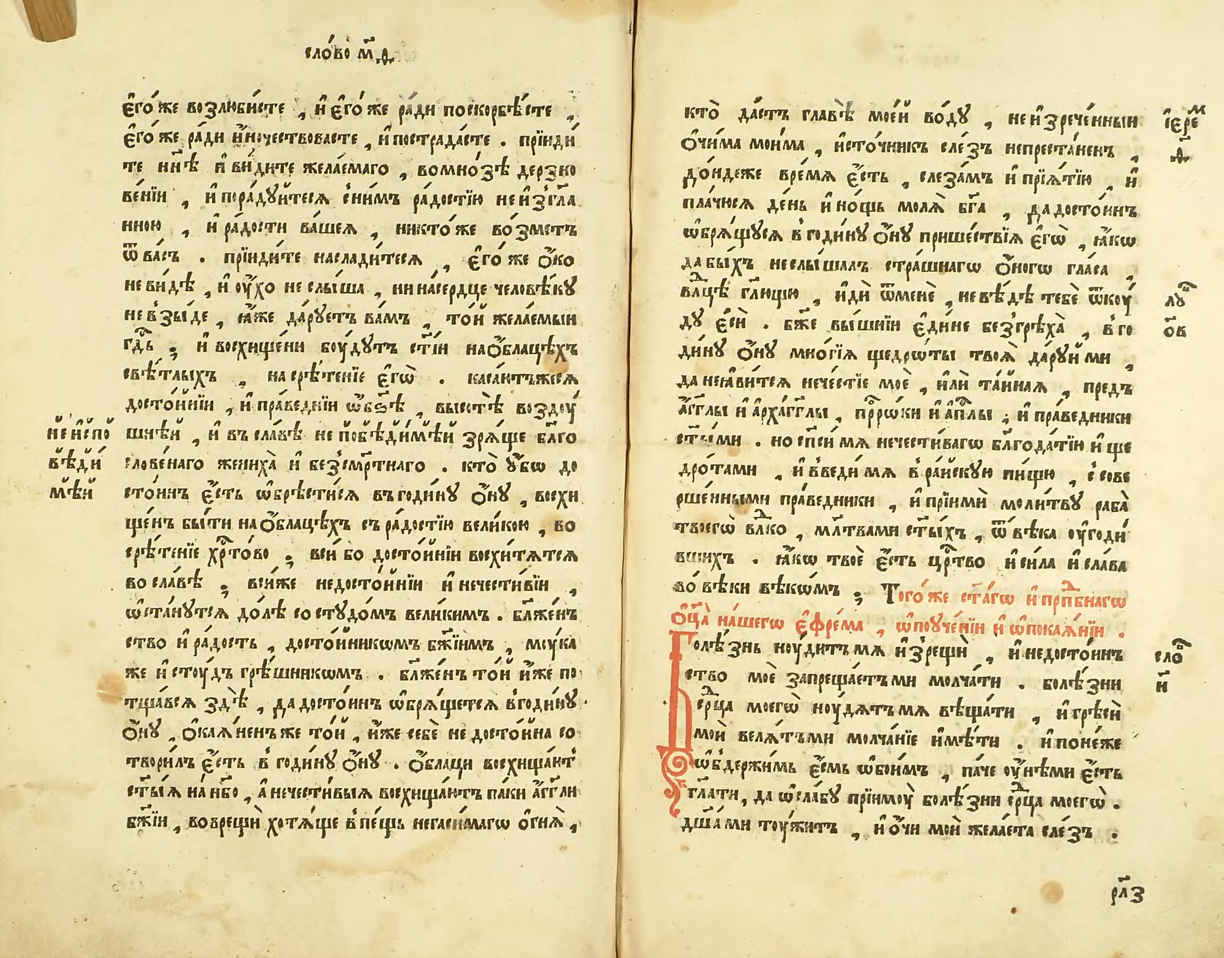 сло́во м҃ѳ
є҆го́же возлю́бисте , и҆ є҆го́же ра́ди поскорбѣ́сте ,
є҆го́же ра́ди и҆́ночествовасте , и҆ пострада́сте . прїиди́
те нн҃ѣ и҆ ви́дите жела́емаго , во мно́зѣ дерзно
ве́нїи , и҆ пора́дꙋйтеся с ни́мъ ра́достїю неи҆згла
нною , и҆ ра́дости ва́шея , никто́же во́зметъ
ѿ ва́съ . прїиди́те насладитеся , є҆го́же ѻ҆́ко
не ви́дѣ , и҆ ᲂу҆́хо не слы́ша , ни на се́рдце человѣ́кꙋ
не взы́де , ꙗ҆́же да́рꙋетъ ва́мъ , то́й жела́емыи
гдⷭ҇ь ; и҆ восхище́ни бꙋ́дꙋтъ ст҃і́и на ѻ҆́блацѣхъ
свѣ́тлыхъ , на срѣ́тенїе є҆гѡ̀ . каса́ютъжеся
досто́йнїи , и҆ пра́веднїи ѡ҆бо́ѣ , высотѣ̀ воздꙋ́
шнѣй , и҆ въ сла́вѣ не побѣди́мѣй зря́ще бл҃го
не и҆спо
вѣди́
мѣй
слове́наго жениха̀ и҆ безсме́ртнаго . кто̀ ᲂу҆́бо до
сто́инъ є҆́сть ѡ҆брѣ́стися въ годи́нꙋ ѻ҆́нꙋ , восхи
ще́нъ бы́ти на ѻ҆́блацѣхъ съ ра́достїю вели́кою , во
срѣ́тенїе хрⷭ҇то́во ; вси́ бо досто́йнїи восхитя́тся
во сла́вѣ ; вси́же недосто́йнїи и҆ нечести́вїи ,
ѡ҆ста́нꙋтся до́лѣ со стꙋдо́мъ вели́кимъ . бл҃же́н
ство и҆ ра́дость , досто́йникѡмъ бж҃їимъ , мꙋ́ка
же и҆ стꙋ́дъ грѣ́шникѡмъ . бл҃же́нъ то́й и҆́же по
тща́вся здѣ̀ , да досто́инъ ѡ҆бря́щется в годи́нꙋ
ѻ҆́нꙋ , ѻ҆кая́ненъже то́й , и҆́же себѐ недосто́йна со
твори́лъ є҆́сть в годи́нꙋ ѻ҆́нꙋ . ѻ҆́блацы восхища́ют
ст҃ы́я на нб҃о , а҆ нечести́выя восхища́ютъ па́ки а҆́гг҃ли
бж҃їи , воврещѝ хотя́ще в пе́щь негаси́магѡ ѻ҆гня̀ ,
кто̀ да́стъ главѣ̀ мое́й во́дꙋ , неи҆зрече́нныи
і҆ере́м
ѳ҃
ѻ҆чи́ма мои́ма , и҆сто́чникъ сле́зъ непреста́ненъ ,
до́ндеже вре́мя є҆́сть , слеза́мъ и҆ прїя́тїю , и҆
пла́чюся де́нь и҆ но́щь моля̀ бг҃а , да досто́инъ
ѡ҆бря́щꙋся в годи́нꙋ ѻ҆́нꙋ прише́ствїя є҆гѡ̀ , ꙗ҆́кѡ
да бы́хъ не слы́шалъ стра́шнагѡ ѻ҆́ногѡ гла́са ,
влⷣцѣ гл҃ющю , и҆дѝ ѿ менѐ , не вѣ́дѣ тебѐ ѿкꙋ́
лꙋ
ѻ҆в
дꙋ є҆сѝ . бж҃е вы́шнїи є҆ди́не без грѣха̀ , в го
ди́нꙋ ѻ҆́нꙋ мно́гїя щедрѡ́ты твоя̀ да́рꙋй ми ,
да не ꙗ҆ви́тся нече́стїе моѐ , и҆лѝ та́йная , предъ
а҆́гг҃лы и҆ а҆рха́гг҃лы , прⷪ҇рѡ́ки и҆ а҆пⷭ҇лы ; и҆ пра́ведники
ст҃ы́ми . но сп҃си́ мя нечести́вагѡ бл҃года́тїю и҆ ще
дро́тами , и҆ введи́ мя в ра́йскꙋю пи́щю , с сове
рше́нными пра́ведники , и҆ прїимѝ моли́твꙋ раба̀
твоегѡ̀ влⷣко , мл҃твами ст҃ы́хъ , ѿ вѣ́ка ᲂу҆годи́
вшихъ . ꙗ҆́кѡ твоѐ є҆́сть црⷭ҇тво и҆ си́ла и҆ сла́ва
во́ вѣки вѣ́кѡмъ ; Того́же ст҃а́гѡ и҆ прпⷣбнагѡ
ѻ҆ц҃а̀ на́шегѡ є҆фре́ма , ѡ҆ поꙋче́нїи и҆ ѡ҆ покая́нїи .
Болѣ́знь нꙋ́дитъ мя и҆зрещѝ , и҆ недосто́ин
сло́в
н҃
ство моѐ запреща́етъ ми молча́ти . болѣ́зни
срⷣца моегѡ̀ нꙋ́дятъ мя вѣща́ти , и҆ грѣсѝ
моѝ веля́тъ ми молча́нїе и҆мѣ́ти . и҆ поне́же
ѡ҆бдержи́мь є҆́смь ѡ҆бои́мъ , па́че ᲂу҆́нѣ ми є҆́сть
гл҃ати , да ѡ҆сла́бꙋ прїимꙋ̀ болѣ́зни срⷣца моегѡ̀ .
дш҃а́ ми тꙋ́житъ , и҆ ѻ҆́чи моѝ жела́ета сле́зъ .
рл҃з